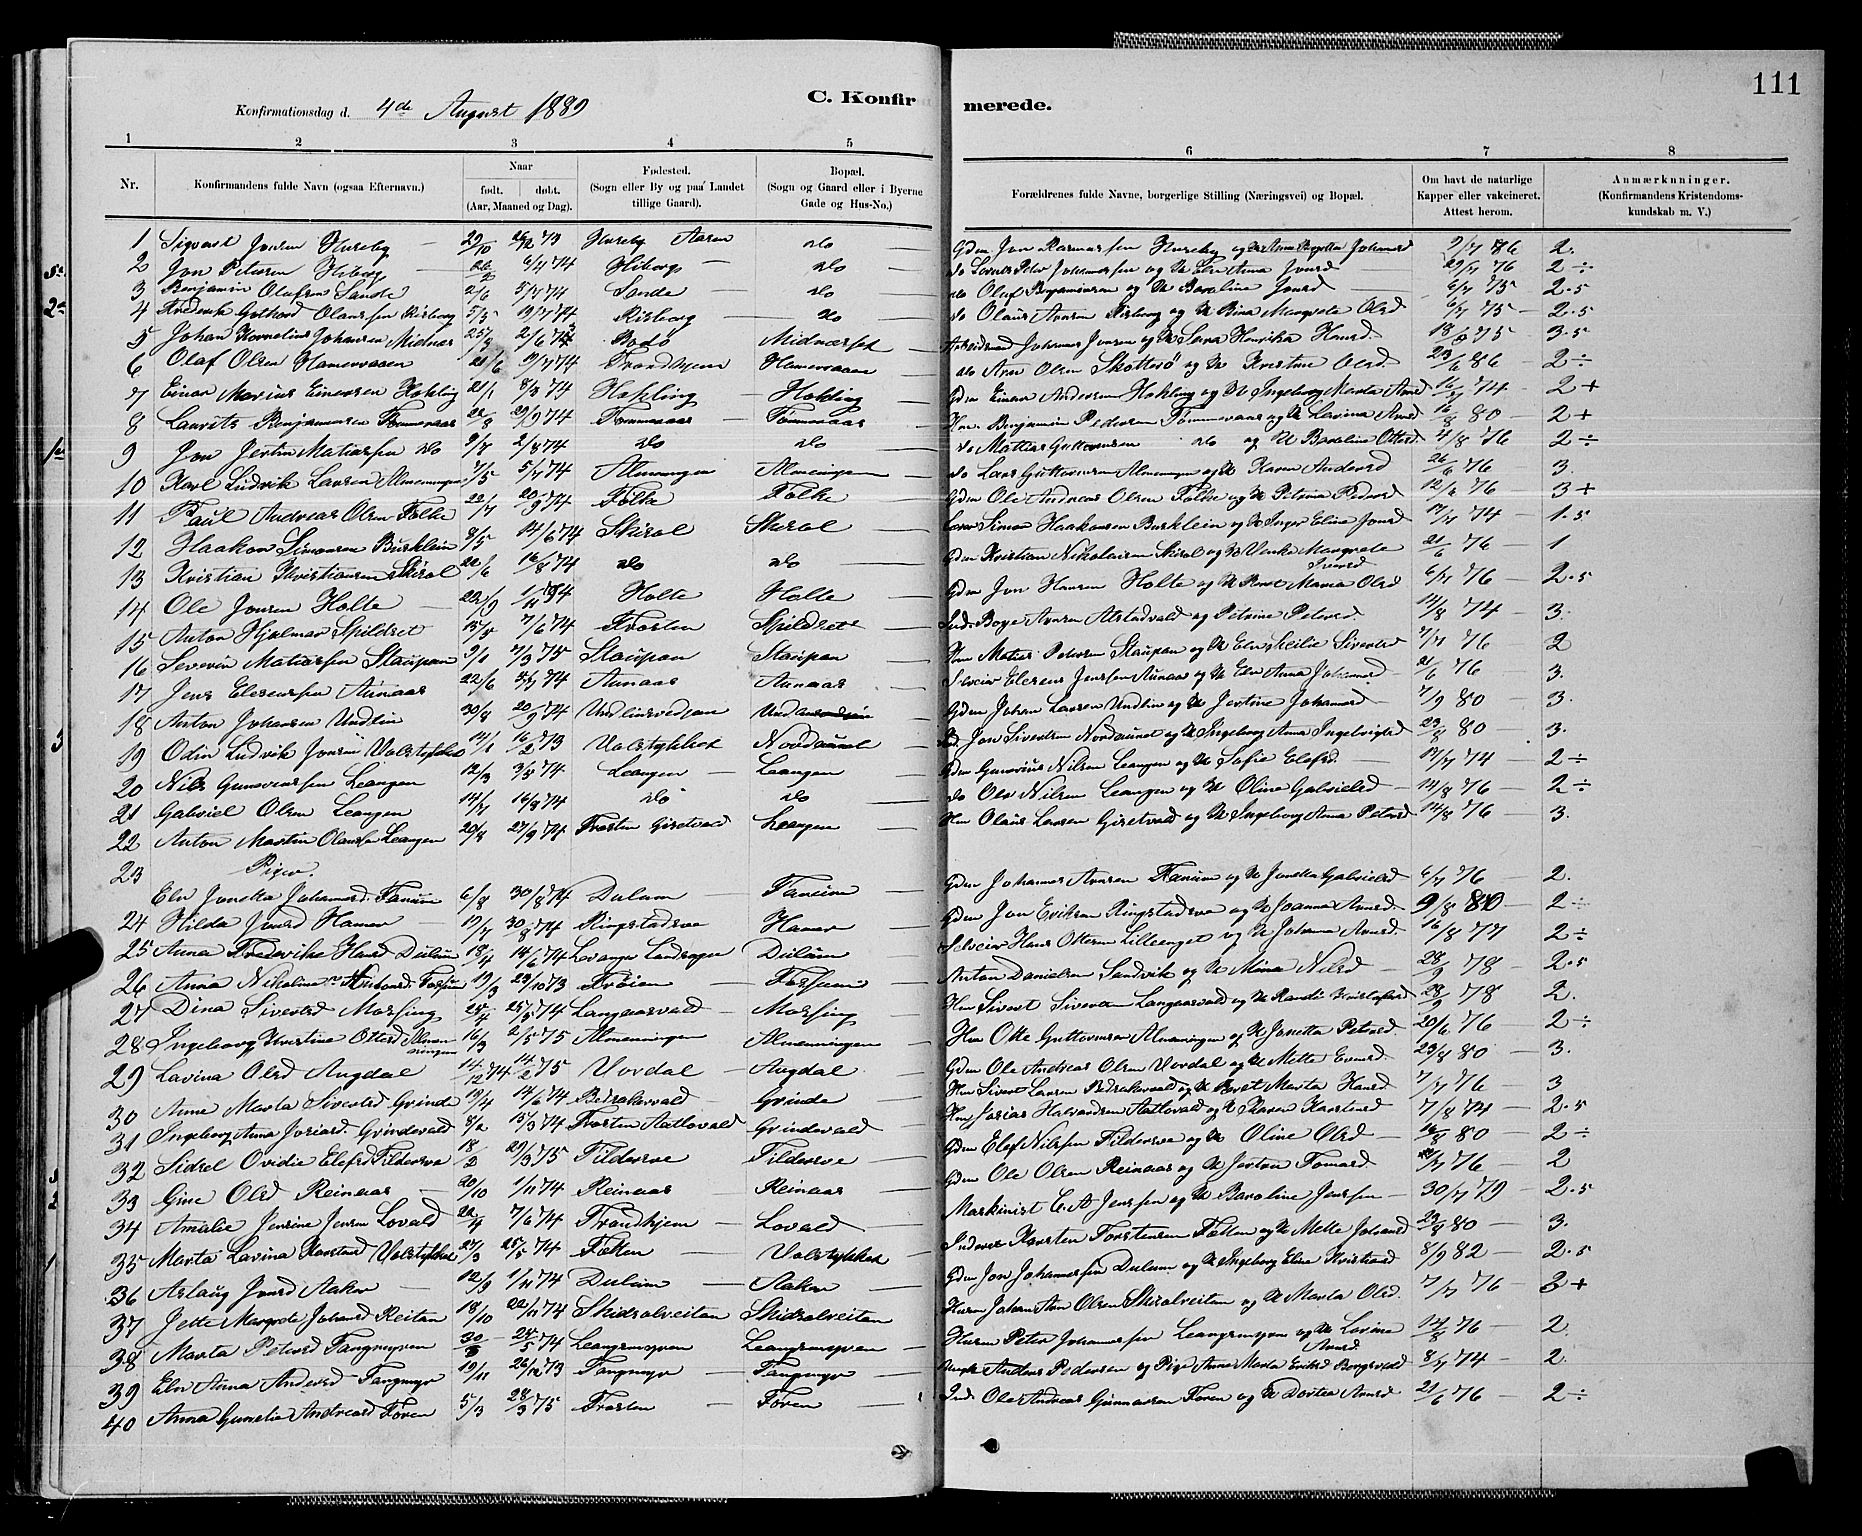 111
C. Konfirmerede.
Konfirmationsdag d. 4de August 1889
1 2 3 4 5 6 7 8
Nr. Konfirmandens fulde Navn (ogsaa Efternavn.) Naar født. døbt. (Aar, Maaned og Dag). Fødested. (Sogn eller By og paa Landet tillige Gaard). Bopæl. (Sogn og Gaard eller i Byerne Gade og Hus-No.) Forældrenes fulde Navne, borgerlige Stilling (Næringsvei) og Bopæl. Om havt de naturlige Kapper eller vakcineret. Attest herom. Anmærkninger. (Konfirmandens Kristendomskundskab m. V.)
1 Sigvart Jonsen Hureby 29/10 26/12 73 Hureby Aasen do Gdm Jon Rasmussen Hureby og Johansd 9/7 76 2.
2 Jon Petersen Hiborg 6/4 74 Hiborg do Peter Johannessen og K Eln Anna Jonsd 76 2 ÷
3 Benjamin Olufsen Sande 2/6 5/7 74 Sande do do Oluf Benjaminsen og K Baralina Jonsd 6/7 75 2.5
4 Fredrik Gothard Olaussen Risborg 5/5 19/7 74 Risborg do do Olaus Arnsen Risborg og K Bina Margrete Olsd 6/7 75 2.5
5 Johan Kornelius Johansen Midnæs 25/8 2/6 74 Bodø Midnæset Arbeidsmand Johannes Jonsen og K Sara Henrika Hansd 18/8 75 3.5
6 Olaf Olsen Hamervaaen 21/6 9/7 74 Trondhjem Hamervaaen do Arn Olsen Skottsø og K Kristine Olsd 23/6 86 2 ÷
7 Einar Marius Einersen Hokling 21/1 8/3 74 Hokling Hokling Gdm Einar Andersen Hokling og K Ingeborg Marta Arnsd 74 2 +
8 Laurits Benjaminsen Tømmeraas 22/8 29/9 74 Tømmeraas Tømmeraas Hm Benjamin Pedersen Tømmeraas og K Lavina Arnsd 16/8 80 2 +
9 Jon Jertin Matiassen do 9/7 2/8 74 do do do Matias Guttormsen do og K Baralina Ottersd 4/8 76 2 ÷
10 Karl Ludvik Larsen Almenningen 7/5 5/7 74 Almeningen Almeningen do Lars Guttormsen Almeningen og K Karen Andersd 26/6 76 3.
11 Paul Andreas Olsen Folke 22/7 20/9 74 Folke Folke Gdm Ole Andreas Olsen Folke og K Petrina Pedersd 76 3 +
12 Haakon Simonsen Burklein 8/5 14/6 74 Skirol Skirol Simon Haakonsen Burklein og K Inger Elina Jonsd 17/7 74 1.5
13 Kristian Kristiansen Skirol 22/6 16/8 74 do do Gdm Kristian Nikolaisen Skirol og K Venke Margrete 21/6 76 1
14 Ole Jonsen Holte 22/9 1/11 74 Holte Holte Gdm Jon Hansen Holte og K Beret Maria Olsd 6/7 76 2.5
15 Anton Hjalmar Spildset 7/6 74 Frosten Spildset Ind. Boye Arnsen Alstadvald og Petrine Petersd 14/8 74 3.
16 Severin Matiassen Staupan 9/1 7/3 75 Staupan Staupan Hm Matias Petersen Staupan og K Eln Cecilie Sivertsd 7/7 76 2
17 Jens Elesenssen Aunaas 22/6 5/7 74 Aunaas Aunaas Selveier Elesens Jenssen Aunaas og K Eln Anna Johansd 21/6 76 3.
18 Anton Johansen Undlin 30/8 20/9 74 Undlinsvedjan Gdm Johan Larsen Undlin og K Jertine Johansd 7/9 80 3.
19 Odin Ludvik Jonsen Valstykket 14/1 16/2 73 Valstykket Nordaunet Jon Sivertsen Nordaunet og K Ingeborg Anna Ingebrigtsd 23/8 80 3.
20 Nils Gunneriussen Leangen 12/3 3/5 74 Leangen Leangen Gdm Gunerius Nilsen Leangen og K Sofie Elefsd 17/7 74 2 ÷
21 Gabriel Olsen Leangen 14/7 16/8 74 do do do Ole Nilsen Leangen og K Olina Gabrielsd 14/8 76 2 ÷
22 Anton Martin Olaussen Leangen 20/8 27/9 74 Frosten Gisetvald Leangen Hm Olaus Larsen Gisetvald og K Ingeborg Anna Petersd 14/8 76 3.
23 Piger.
Eln Jonetta Johannesd. Fanum 6/8 30/8 74 Dulum Fanum Gdm Johannes Arnsen Fanum og K Jonetta Gabrielsd 6/7 76 2.
24 Hilda Jonsd Hamer 19/7 30/8 74 Ringstadsve Hamer Gdm Jon Eriksen Ringstadsve og K Joanna Arnsd 9/8 80 2 ÷
25 Anna Fredrikke Hansd Dulum 18/4 14/6 74 Levanger Landsogn Dulum Selveier Hans Ottersen Lilleenget og K Johanna Arnsd. 16/8 77 2 ÷
26 Anna Nikolina Forsum 19/3 29/10 73 Frøien Forsum Anton Danielsen Sandvik og K Mina Nilsd 28/9 78 2.5
27 Dina Sivertsd Mossing 25/4 25/5 74 Langaasvald Mossing Hm Sivert Sivertsen Langaasvald og K Randi Kristofersd 28/9 78 2.
28 Ingeborg Kristine Ottersd Almenningen 16/3 2/5 75 Almenningen Almenningen Hm Otte Guttormsen Almeningen og K Jonetta Petersd 20/6 76 2 ÷
29 Lavina Olsd Augdal 14/12 74 14/2 75 Vordal Augdal Gdm Ole Andreas Olsen Vordal og K Mette Evensd. 23/8 80 3.
30 Anne Marta Sivertsd Grinde 19/4 14/6 74 Grinde Hm Sivert Larsen og K Beret Marta Hansd 7/7 76 3
31 Ingeborg Anna Josiasd. Grindvald 8/2 15/3 74 Frosten Aatlovald Grindvald Hm Josias Halvardsen Aatlovald og K Karen Karstensd 7/8 74 2.5
32 Sidsel Ovidie Elefsd Tildersve 18/2 29/3 75 Tildersve Tildersve Gdm Elef Nilssen Tildersve og K Oline Olsd 16/8 80 2 ÷
33 Gine Olsd Reinaas 20/10 1/11 74 Reinaas Reinaas Gdm Ole Olsen Reinaas og K Tomasd. 76 2
34 Amalie Jensine Jensen Lovald 22/4 7/6 74 Trondhjem Lovald Maskinist C. A Jenssen og K Baroline Jenssen 30/7 79 2.5
35 Marta Lavina Karstend Valstykket 27/3 25/5 74 Fætten Valstykket Inderst Karsten Torstensen Fætten og K Mette Johansd 23/8 80 3.
36 Aslaug Jonsd Aaker 12/9 1/11 74 Dulum Aaker Gdm Jon Johannessen Dulum og K Ingeborg Elina Kristiansd 8/9 82 2.5
37 Jette Margrete Johansd Reitan 18/10 22/11 74 Skidralreitan Skidralreitan Husm Johan Arn Olsen Skiralreitan og K Marta Olsd. 7/7 76 3 +
38 Marta Petersd Tangmyren 24/5 74 Leangsmyren Leangsmyren Husm Peter Johannessen Leangsmyren og K Lavina Arnsd 14/8 76 2.
39 Eln Anna Andersd Tangmyr 19/11 26/12 73 Tangmyr Tangmyr Anders Pedersen og Pige Anne Marta Eriksd Borgsvald 8/7 74 2.
40 Anna Gunelia Andreasd Føren 5/3 28/3 75 Frosten Føren Ind. Ole Andreas Gunnarsen Føren og K Dortea Arnsd 21/6 76 2 ÷